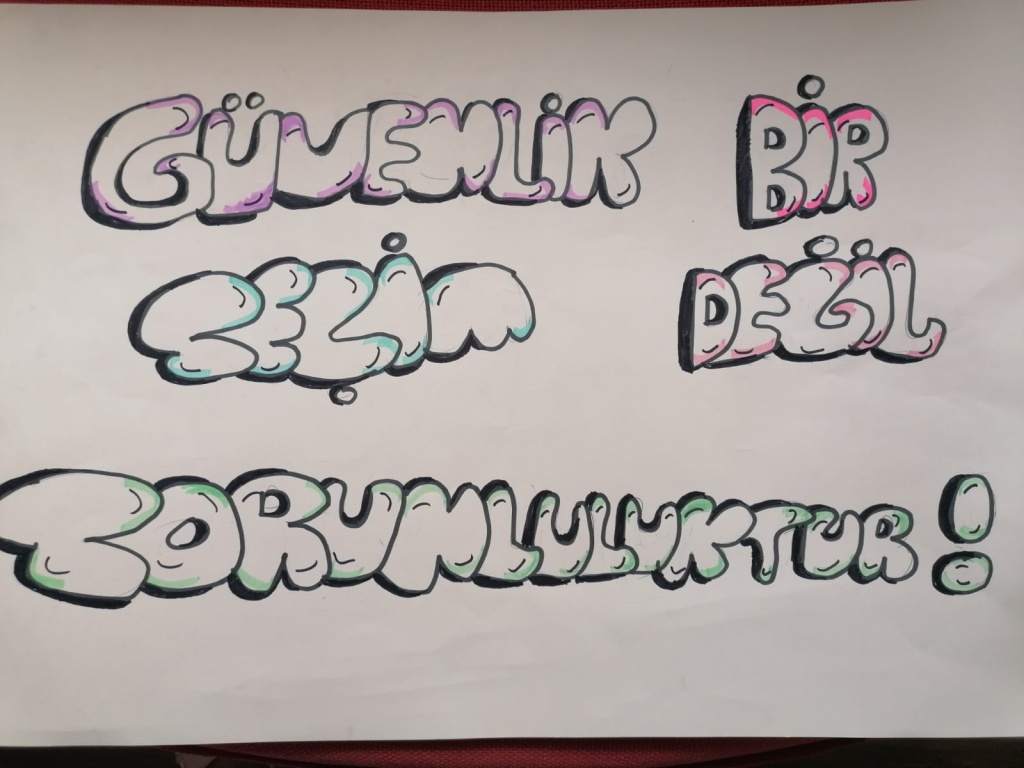 GÜVENLİK BİR
SEÇİM DEĞİL
SORUMLULUKTUR!